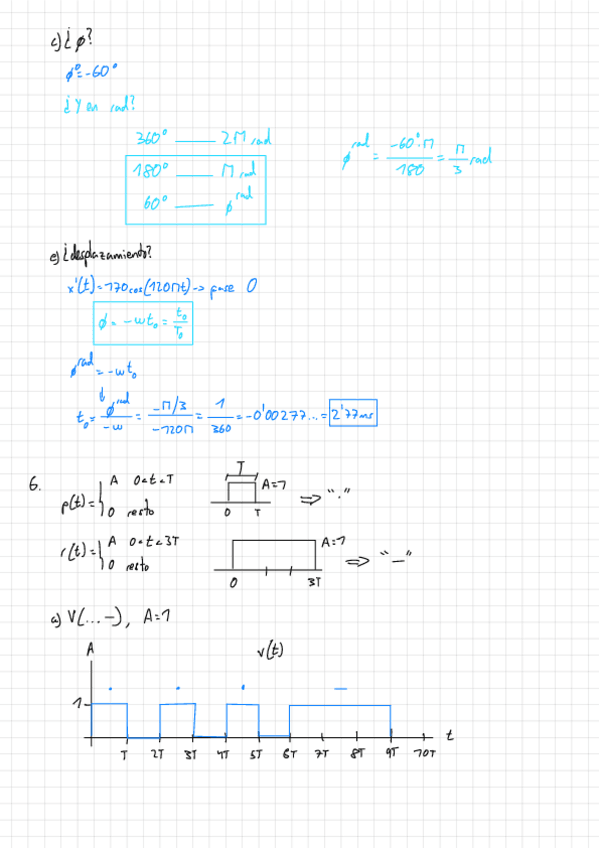 c) ¿ϕ?
ϕº=-60°
¿Y en rad?
360° — 2Π rad
180° — Π rad
60° — ϕ^rad
ϕ^rad = -60°·Π / 180 = Π/3 rad
e) ¿desplazamiento?
x'(t)=170cos(120Πt) -> fase 0
ϕ = -wt₀ = t₀/T₀
ϕ^rad = -wt₀
t₀ = ϕ^rad / -w = -Π/3 / -120Π = 1/360 = -0'00277... = 2'77ms
6.
p(t) = { A 0<t<T
0 resto
T
A=1
0 T
=> "."
r(t) = { A 0<t<3T
0 resto
A=1
0 3T
=> "—"
a) V(...-), A=1
A
v(t)
. . . —
1
T 2T 3T 4T 5T 6T 7T 8T 9T 10T
t